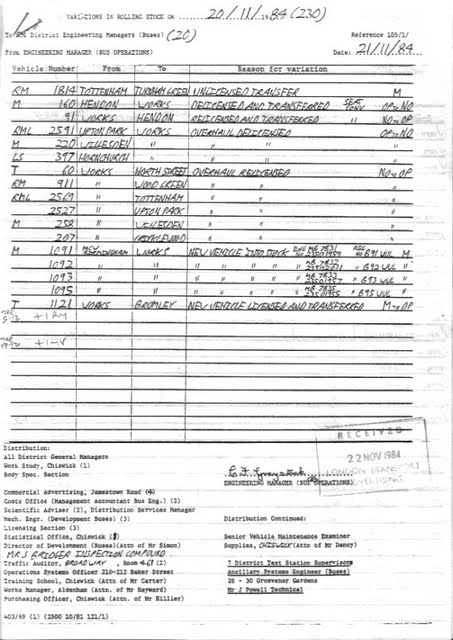 VARIATIONS IN ROLLING STOCK ON 20/11/1984 (230)
To District Engineering Managers (Buses) (20)
Reference 105/1/
From ENGINEERING MANAGER (BUS OPERATIONS)
Date: 21/11/84
Vehicle Number From To Reason for variation
RM 1814 TOTTENHAM TURNHAM GREEN UNLICENSED TRANSFER M
M 160 HENDON WORKS DELICENSED AND TRANSFERRED SEAT CONV. OP TO NO
91 WORKS HENDON RELICENSED AND TRANSFERRED " NO TO OP
RML 2591 UPTON PARK WORKS OVERHAUL DELICENSED OP TO NO
M 220 WILLESDEN " " "
LS 397 HORNCHURCH " " "
T 60 WORKS NORTH STREET OVERHAUL RELICENSED NO TO OP
RM 911 " WOOD GREEN " "
RML 2569 " TOTTENHAM " "
2527 " UPTON PARK " "
M 258 " WILLESDEN " "
207 " CRICKLEWOOD " "
M 1091 MCW BIRMINGHAM WORKS NEW VEHICLE INTO STOCK ENG NO MB 7831 REG NO B91 WUL M
1092 " " " " " " MB 7832 " B92 WUL "
1093 " " " " " " MB 7833 " B93 WUL "
1095 " " " " " " MB 7835 " B95 WUL "
T 1121 WORKS BROMLEY NEW VEHICLE LICENSED AND TRANSFERRED M TO OP
+1 RM
+1 MV
RECEIVED
22 NOV 1984
LONDON TRANSPORT
ADVERTISING
Distribution:
All District General Managers
Work Study, Chiswick (1)
Body Spec. Section
ENGINEERING MANAGER (BUS OPERATIONS)
Commercial Advertising, Jamestown Road (4)
Costs Office (Management Accountant Bus Eng.) (2)
Scientific Adviser (2), Distribution Services Manager
Mech. Engr. (Development Buses) (3)
Distribution Continued:
Licensing Section (3)
Statistical Office, Chiswick
Senior Vehicle Maintenance Examiner
Director of Development (Buses) (Attn of Mr Simon)
Supplies, CHISWICK (Attn of Mr Dancy)
MR S GRIDER INSPECTION COMPOUND
Traffic Auditor, BROADWAY, Room 461 (2)
7 District Test Station Supervisors
Operations Systems Officer 210-212 Baker Street
Ancillary Systems Engineer (Buses)
Training School, Chiswick (Attn of Mr Carter)
28 - 30 Grosvenor Gardens
Works Manager, Aldenham (Attn. of Mr Hayward)
Mr J Powell Technical
Purchasing Officer, Chiswick (Attn. of Mr Hillier)
403/69 (1) (2500 10/81 121/1)